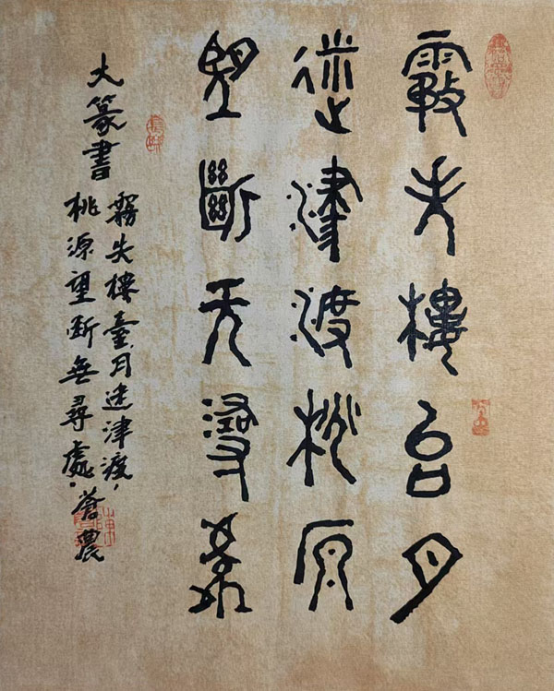 霧失樓台月
迷津渡桃原
望斷无尋處
大篆書
霧失樓臺月迷津渡，
桃源望断無尋處。蒼農